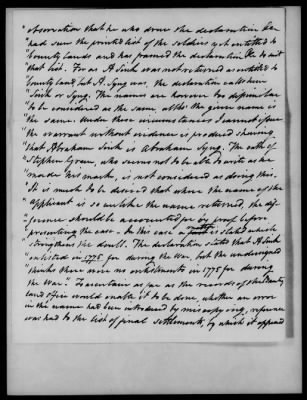 "observation that he who drew the declaration has
"had seen the printed list of the soldiers yet entitled to
"bounty lands and has framed the declaration to suit
"that list. For as A Sink was not returned as entitled to
"bounty land, but A. Syng was, the declaration calls him
"Sink or Syng. The names are however too dissimilar
"to be considered as the same, altho the given name is
"the same. Under these circumstances I cannot issue
"the warrant without evidence is produced shewing
"that Abraham Sink is Abraham Syng. The oath of
"Stephen Green, who seems not to be able to write as he
"made his mark, is not considered as doing this.
"It is much to be desired that where the name of the
"applicant is so unlike the name returned, the dif-
"ference should be accounted for by proof before
"presenting the case - In this case a fact is stated which
"strengthens the doubt. The declaration states that A Sink
"enlisted in 1775 for during the war, but the undersigned
"thinks there were no enlistments in 1775 for during
"the War. To ascertain as far as the records of the bounty
land office would enable it to be done, whether an error
in the name had been introduced by miscopying, reference
was had to the list of final settlements, by which it appeared